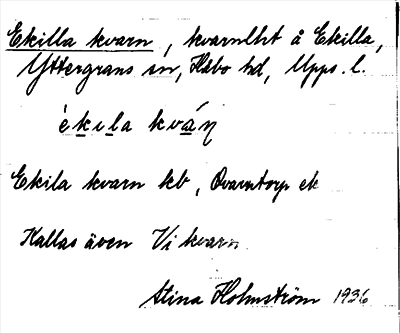 Ekilla kvarn, kvarnlht å Ekilla,
Yttergrans sn, Håbo hd, Upps. l.
èkila kván
Ekila kvarn kb, Qvarntorp ek
Kallas även Vi kvarn
Stina Holmström 1936